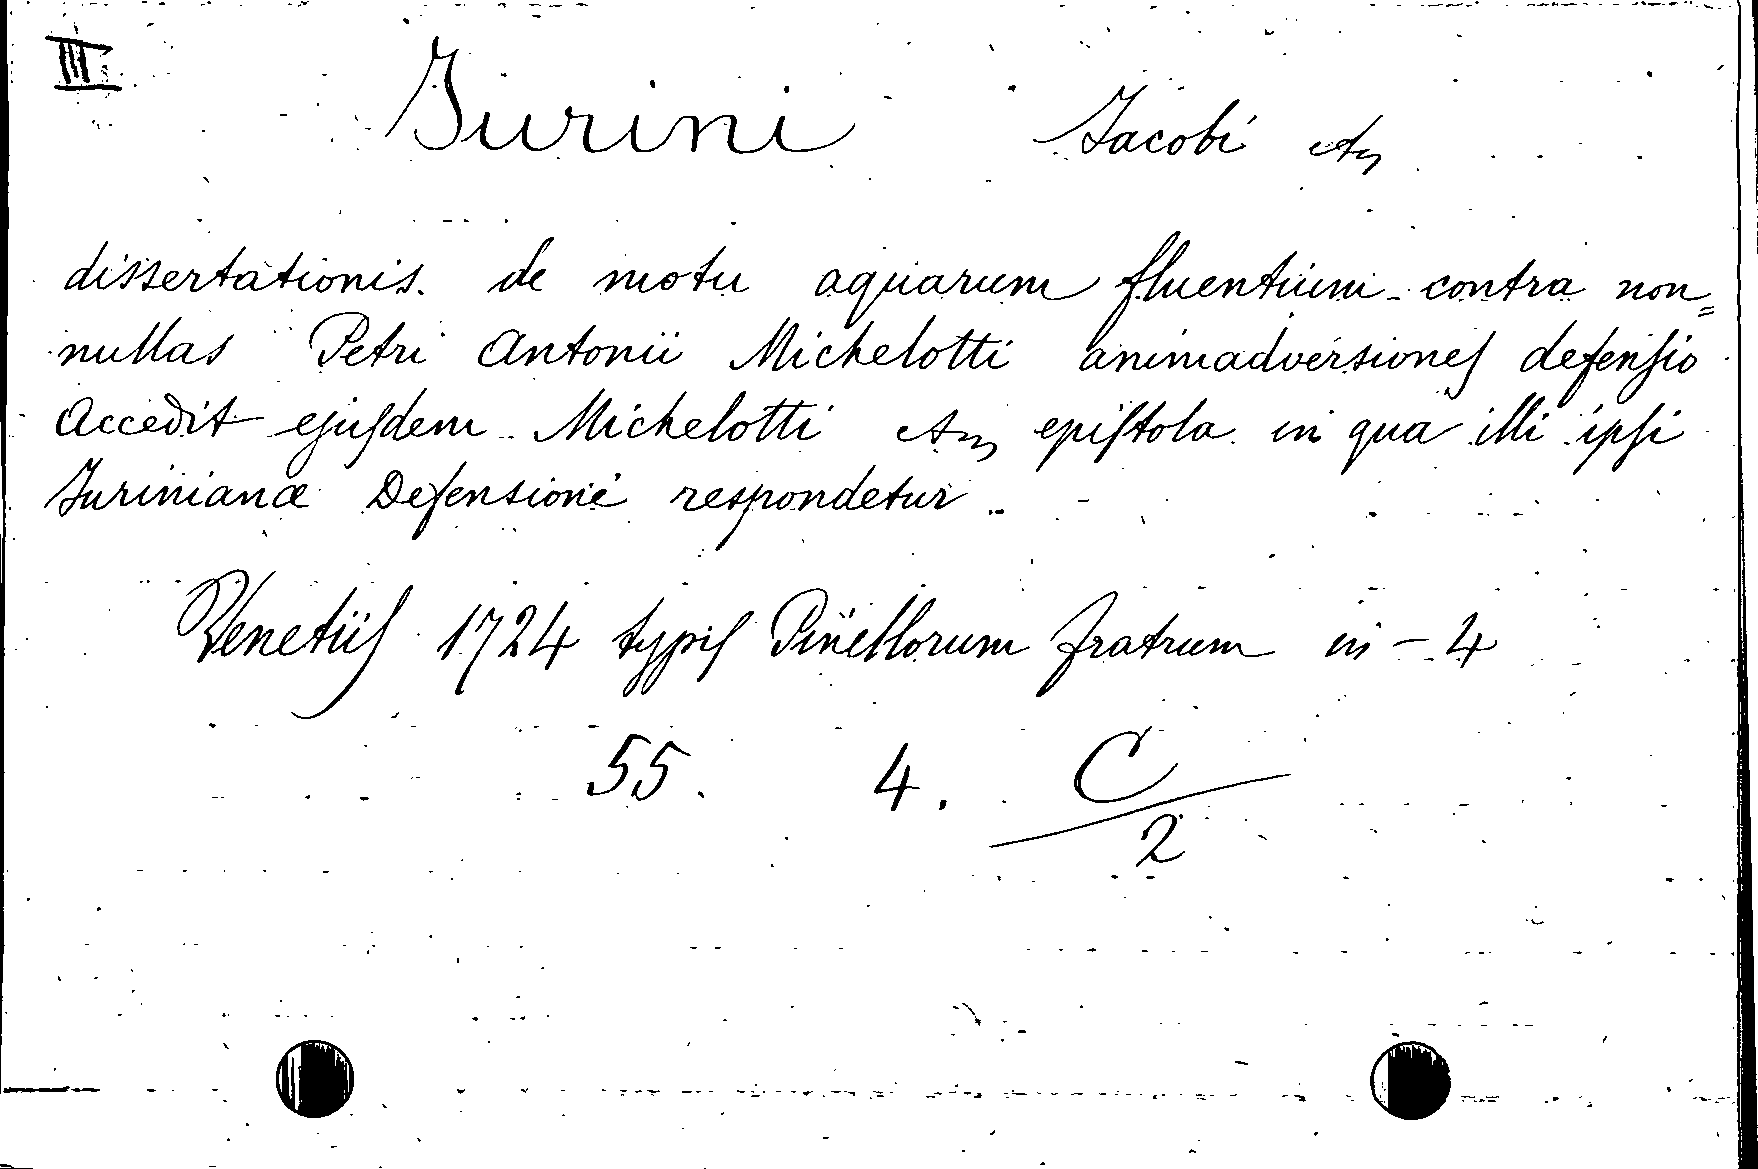 III
Jurini Jacobi
dissertationis de motu aquarum fluentium contra non=
nullas Petri Antonii Michelotti animadversiones defensio
Accedit ejusdem Michelotti epistola in qua illi ipsi
Jurinianæ Defensioni respondetur.
Venetiis 1724 typis Pinellorum fratrum in-4
55. 4. C/2